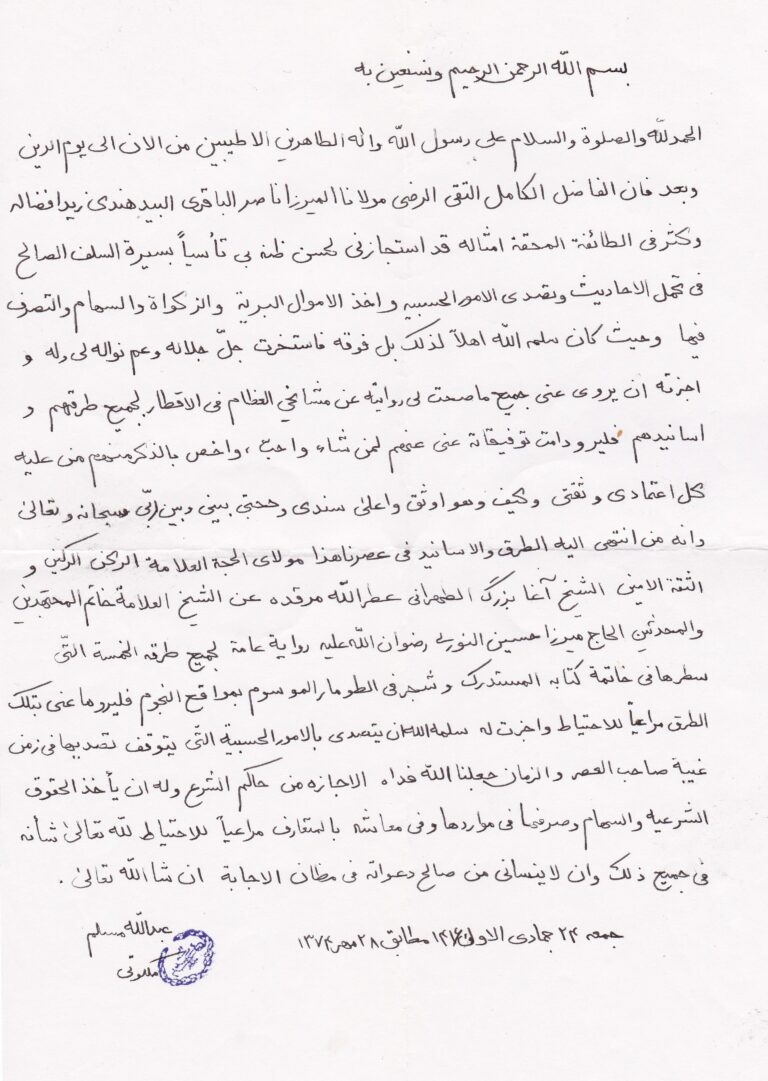 بسم الله الرحمن الرحیم ونستعین به
الحمدلله والصلوة والسلام علی رسول الله واله الطاهرین الاطیبین من الان الی یوم الدین
وبعد فان الفاضل الکامل التقی الرضی مولانا المیرزا ناصر الباقری البیدهندی زید افضاله
وکثر فی الطائفة المحقة امثاله قد استجازنی لحسن ظنه بی تأسیاً بسیرة السلف الصالح
فی تحمل الاحادیث وتصدی الامور الحسبیه واخذ الاموال البریة والزکواة والسهام والتصرف
فیها وحیث کان سلمه الله اهلاً لذلک بل فوقه فاستخرت جلّ جلاله وعم نواله لی وله و
اجزته ان یروی عنی جمیع ما صحت لی روایته عن مشایخی العظام فی الاقطار بجمیع طرقهم و
اسانیدهم فلیرو دامت توفیقاته عنی عنهم لمن شاء واحبّ، واخص بالذکر منهم من علیه
کل اعتمادی وثقتی وکیف وهو اوثق واعلیٰ سندی وحجتی بینی وبین ربّی سبحانه وتعالیٰ
وانه من انتهی الیه الطرق والاسانید فی عصرنا هذا مولای الحجة العلامة الرکن الرکین و
الثقة الامین الشیخ آغا بزرگ الطهرانی عطر الله مرقده عن الشیخ العلامة خاتم المجتهدین
والمحدثین الحاج میرزا حسین النوری رضوان الله علیه روایة عامة بجمیع طرقه الخمسة التّی
سطرها فی خاتمة کتابه المستدرک وشجر فی الطومار الموسوم بمواقع النجوم فلیروها عنی بتلک
الطرق مراعیاً للاحتیاط واجزت له سلمه الله ان یتصدی بالامور الحسبیة التّی یتوقف تصدیها فی زمن
غیبة صاحب العصر والزمان جعلنا الله فداه الاجازه من حاکم الشرع وله ان یأخذ الحقوق
الشرعیه والسهام وصرفها فی مواردها وفی معاشه بالمتعارف مراعیاً للاحتیاط لله تعالیٰ شأنه
فی جمیع ذلک وان لاینسانی من صالح دعواته فی مظان الاجابة ان شا الله تعالیٰ.
جمعه ۲۴ جمادی الاولیٰ ۱۴۱۶ مطابق ۲۸ مهر ۱۳۷۴
عبدالله مسلم
ملکوتی